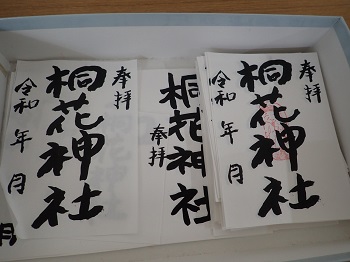 奉拝
桐花神社
令和 年 月
桐花神社
奉拝
奉拝
桐花神社
令和 年 月
月